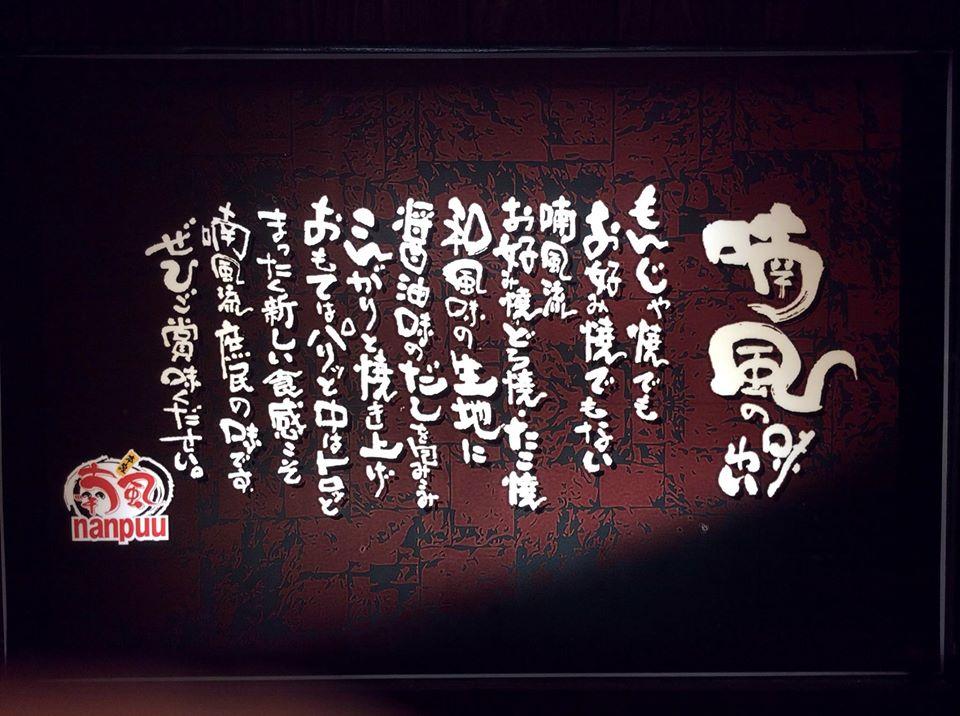 喃風の味い
もんじゃ焼でも
お好み焼でもない
喃風流
お好み焼どろ焼・たこ焼
和風味の生地に
醤油味のだしを包みこみ
こんがりと焼き上げ
おもてはパリッと中はトロピ
まったく新しい食感こそ
喃風流庶民の味です
ぜひご賞味ください。
喃風
nanpuu